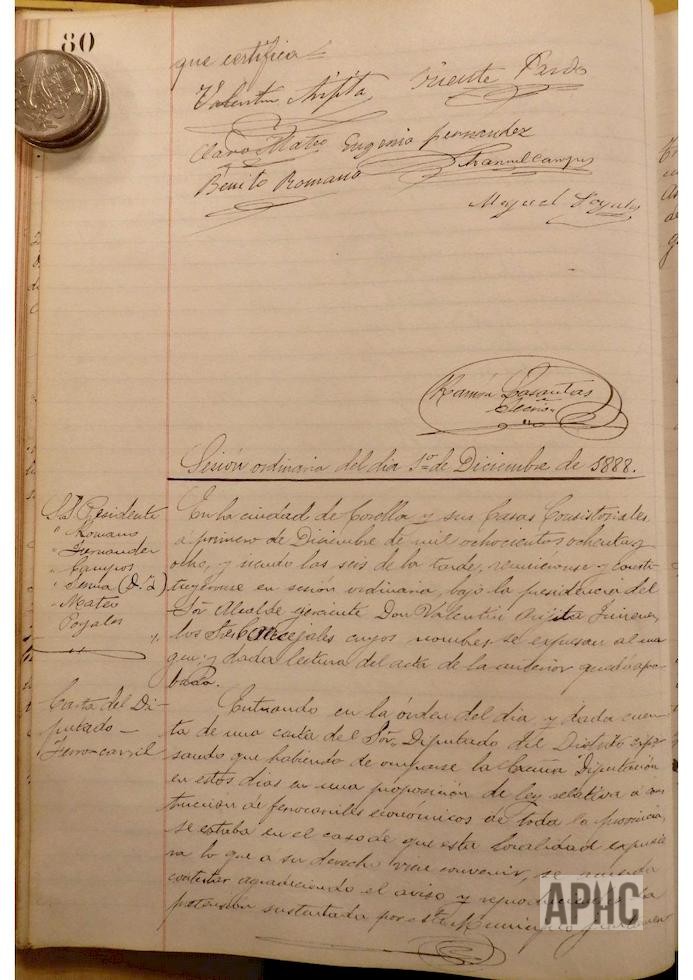 80
que certifica
Valentin Arijita Vicente Pardo
Claro Mateo Eugenio Fernandez
Benito Romano Manuel Campos
Miguel Poyales
Ramón Lasantas
Secrio
Sesión ordinaria del dia 1º de Diciembre de 1888.
S.S. Presidente
" Romano
" Fernandez
" Campos
" Serna (D. L.)
" Mateo
" Poyales
En la ciudad de Corella y sus Casas Consistoriales
a primero de Diciembre de mil ochocientos ochenta y
ocho, y siendo las seis de la tarde, reunieronse y consti-
tuyeronse en sesión ordinaria, bajo la presidencia del
Sór. Alcalde ejerciente Don Valentin Arijita Jimenez
los Sres. Concejales cuyos nombres se expresan al mar
gen; y dada lectura del acta de la anterior quedó apro-
bada.
Carta del Di-
putado -
Ferro-carril
Entrando en la órden del dia y dada cuen-
ta de una carta del Sór. Diputado del Distrito expre-
sando que habiendo de ocuparse la Excma Diputación
en estos dias en una proposición de ley relativa á cons
trucción de ferrocarriles económicos de toda la provincia,
se estaba en el caso de que esta localidad expusie
ra lo que a su derecho viere convenir, se acuerda
contestar agradeciendo el aviso y reproduciendo la
pretensión sustentada por este Municipio
APHC